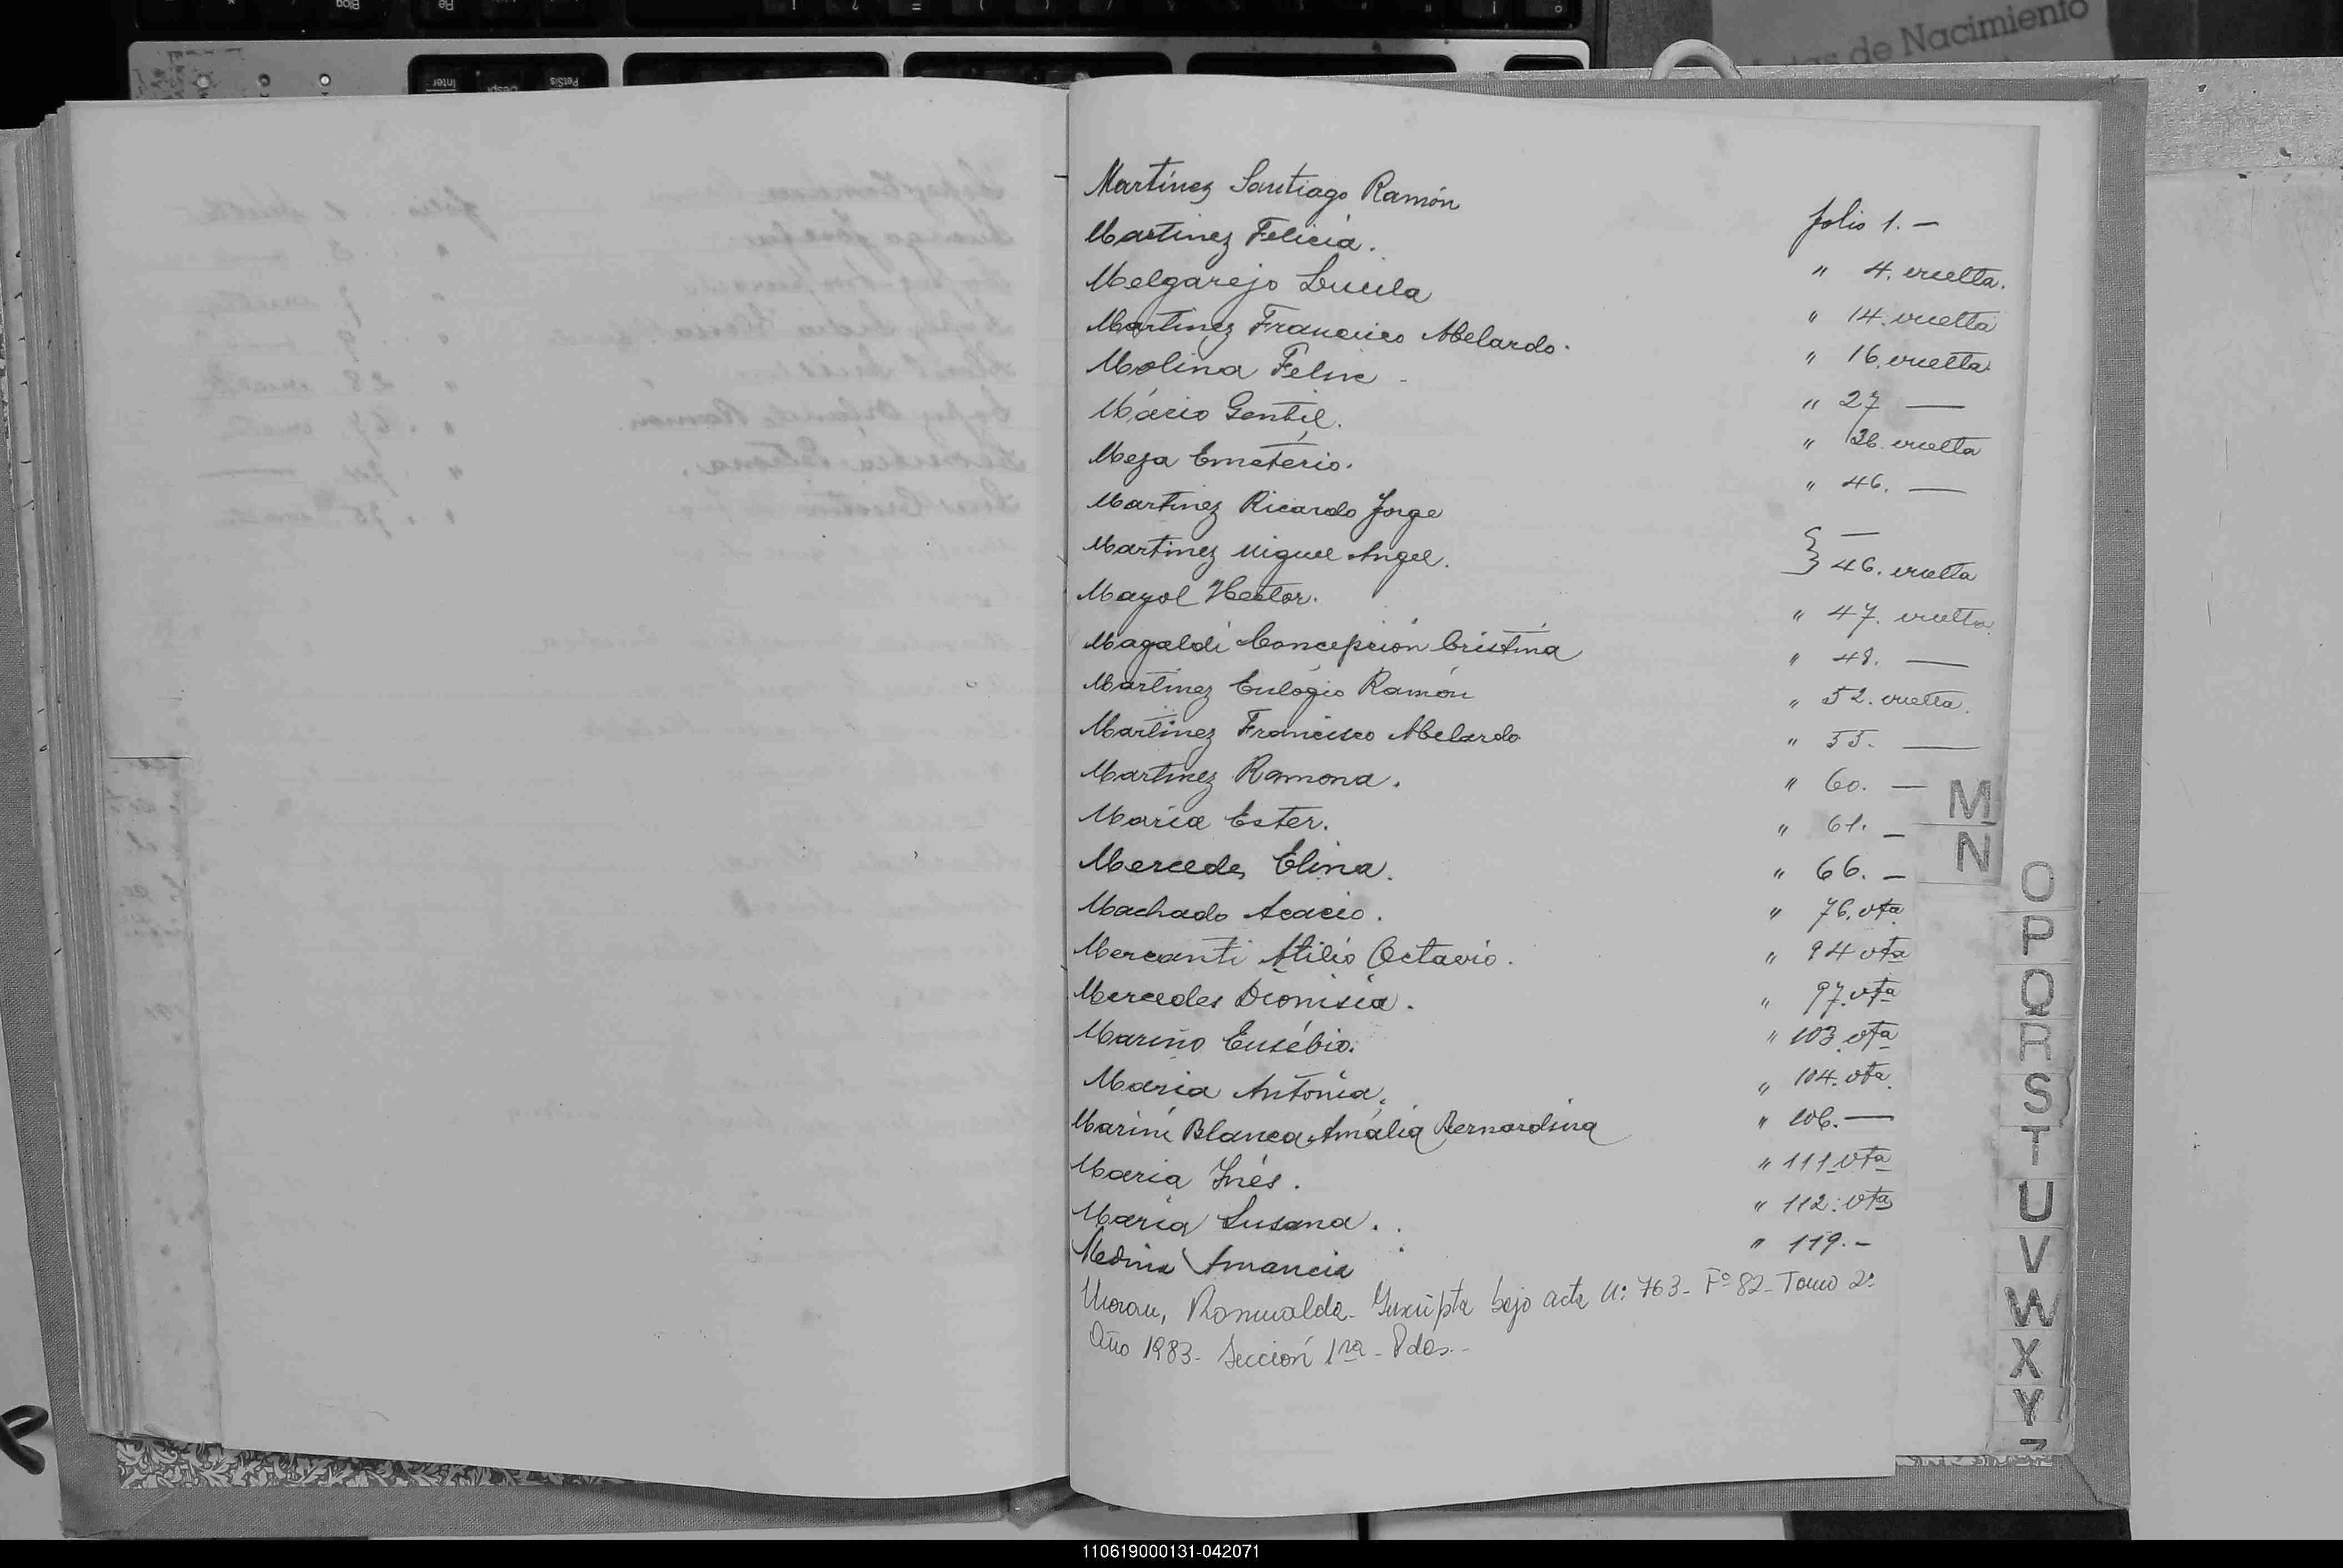 Actas de Nacimiento
Martínez Santiago Ramón folio 1. —
Martinez Felicia. " 4. vuelta.
Melgarejo Lucila " 14. vuelta
Martinez Francisco Abelardo. " 16. vuelta.
Molina Felix - " 27 —
Mácio Gentil. " 36. vuelta
Meza Emeterio. " 46. —
Martinez Ricardo Jorge —
Martinez Miguel Angel. } 46. vuelta
Mayol Hector. " 47. vuelta.
Magaldi Concepción Cristina " 48. —
Martinez Eulógio Ramón " 52. vuelta.
Martinez Francisco Abelardo " 55. —
Martinez Ramona. " 60. —
María Ester. " 61. —
Mercedes Elina. " 66. —
Machado Acacio. " 76. vta
Mercanti Atilio Octavio. " 94 vta
Mercedes Dionisia. " 97. vta
Mariño Eusébio. " 103. vta
Maria Antonia. " 104. vta.
Marini Blanca Amalia Bernardina " 106. —
Maria Inés. " 111 vta
María Susana. " 112. vta
Medina Amancia " 119. -
Moran, Romualda - Inscripta bajo acta Nº 763 - Fº 82 - Tomo 2º
Año 1983 - Sección 1ra - Pdas.-
M
N
O
P
Q
R
S
T
U
V
W
X
Y
Z
110619000131-042071